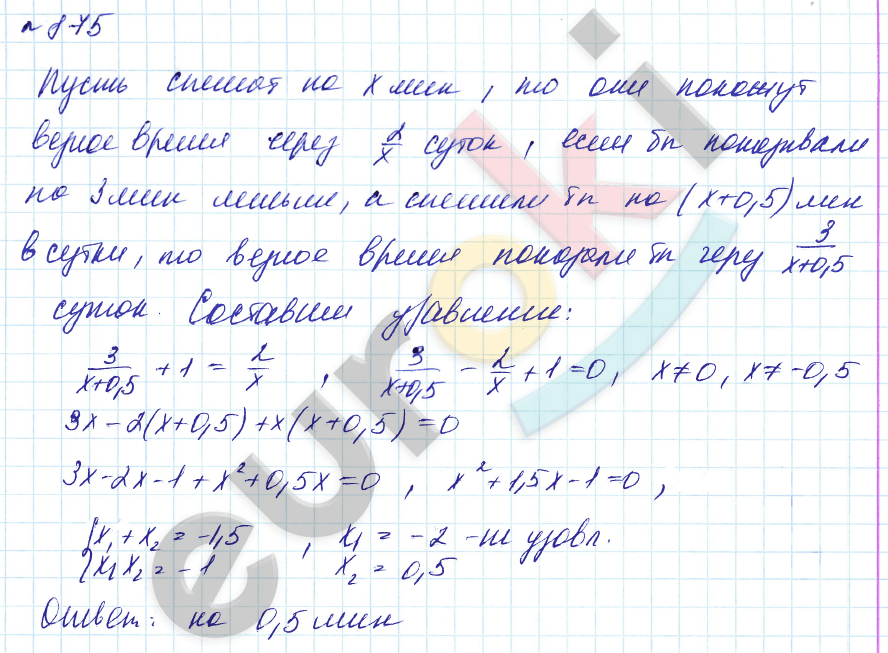 № 875
Пусть спешат на x мин, то они покажут
верное время через 2/x суток, если бы показывали
на 3 мин меньше, а спешили бы на (x+0,5) мин
в сутки, то верное время показали бы через 3/(x+0,5)
суток. Составим уравнение:
3/(x+0,5) + 1 = 2/x , 3/(x+0,5) − 2/x + 1 = 0, x≠0, x≠-0,5
3x − 2(x+0,5) + x(x+0,5) = 0
3x−2x−1+x²+0,5x=0 , x²+1,5x−1=0 ,
{x₁ + x₂ = −1,5 , x₁ = −2 - не удовл.
{x₁ x₂ = −1 x₂ = 0,5
Ответ: на 0,5 мин
euroki